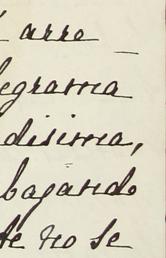 arro
legrama
disima,
bagando
te no se